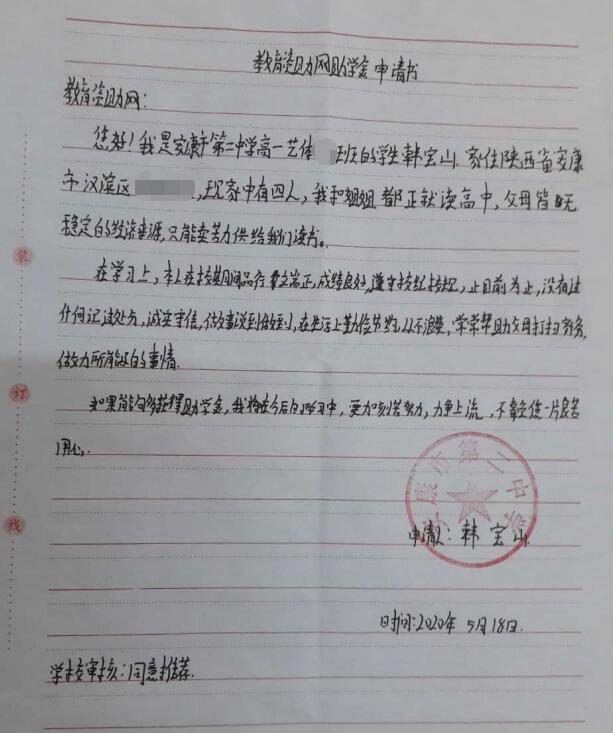 教育资助网助学金申请书
教育资助网：
您好！我是安康市第二中学高一艺体 班的学生韩宝山.家住陕西省安康
市汉滨区 ,现家中有四人，我和姐姐都正就读高中，父母皆无
稳定的经济来源,只能卖苦力供给我们读书。
在学习上，本人在校期间品行端正,成绩良好,遵守校纪校规，止目前为止，没有过
任何记过处分，诚实守信，做事说到做到，在生活上勤俭节约，从不浪费、常常帮助父母打扫家务，
做力所能及的事情.
如果能够获得助学金，我将在今后的学习中，更加刻苦努力，力争上流，不辜负您一片良苦
用心.
安康市第二中学
申请人：韩宝山
时间:2020年5月18日.
学校审核：同意推荐.
装
订
线